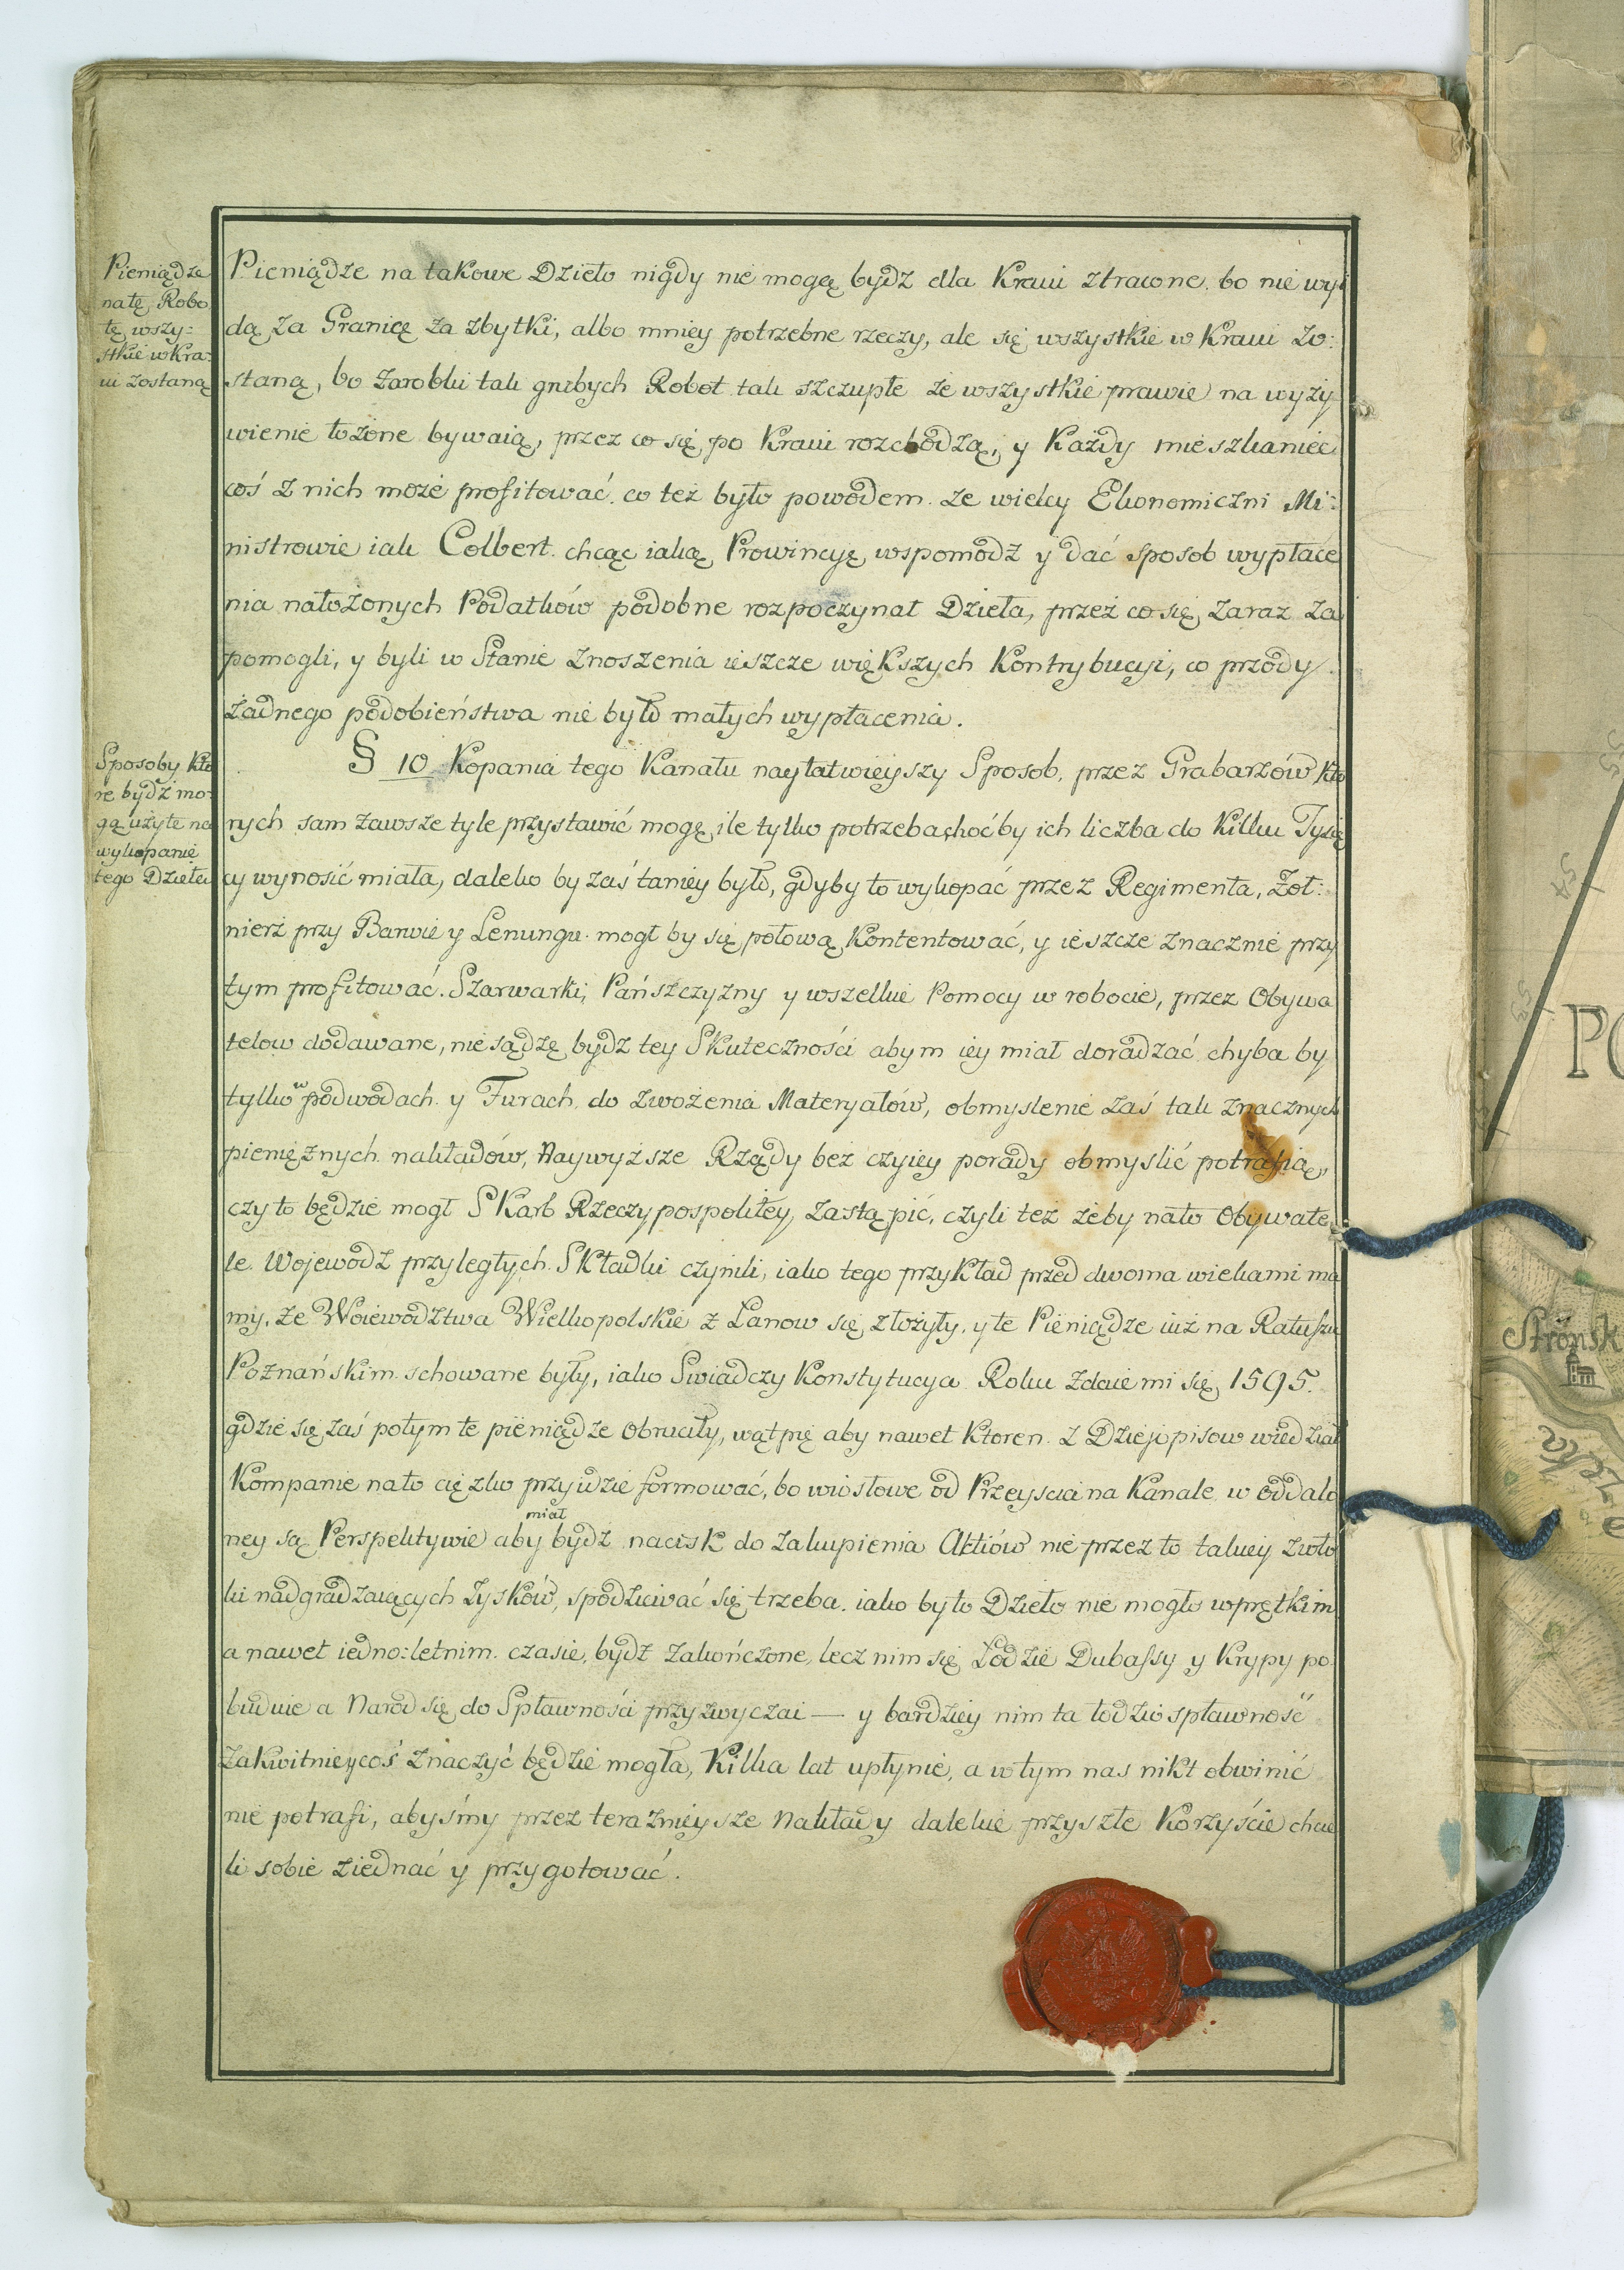 Pieniądze
natę Robo
tę wszy:
stkie w Kra:
iu zostaną
Pieniądze na takowe Dzieło nigdy nie mogą bydź dla Kraiu ztracone. bo nie wyi
dą za Granicę za zbytki, albo mniey potrzebne rzeczy, ale się wszystkie w Kraiu zo:
staną, bo zarobki tak grubych Robot tak szczupłe że wszystkie prawie na wyży
wienie łożone bywaią, przez co się po Kraiu rozchodzą, y Każdy mieszkaniec
coś z nich może profitować. co też było powodem. że wielcy Ekonomiczni Mi:
nistrowie iak Colbert. chcąc iaką Prowincyę wspomodz y dać sposob wypłace
nia nałożonych Podatków podobne rozpoczynał Dzieła, przez co się zaraz za
pomogli, y byli w Stanie znoszenia ieszcze większych Kontrybucyi, co przódy
żadnego podobieństwa nie było małych wypłacenia.
Sposoby Kto
re bydź mo:
gą użyte na
wykopanie
tego Dzieła
§ 10 Kopania tego Kanału nayłatwieyszy Sposob, przez Grabarzów Kto
rych sam zawsze tyle przystawić mogę, ile tylko potrzeba, choćby ich liczba do Kilku Tysię
cy wynosić miała, daleko by zaś taniey było, gdyby to wykopać przez Regimenta, Żoł:
nierz przy Barwie y Lenungu mogł by się połową Kontentować, y ieszcze znacznie przy
tym profitować. Szarwarki, Pańszczyzny y wszelkie Pomocy w robocie, przez Obywa
telow dodawane, nie sądzę bydź tey Skuteczności abym iey miał doradzać chyba by
tylko w podwodach y Furach do zwożenia Materyałów, obmyślenie zaś tak znacznych
pieniężnych nakładów, Naywyższe Rządy bez czyiey porady obmyslić potrafią,
czy to będzie mogł SKarb Rzeczypospolitey, zastąpić, czyli też żeby nato Obywate
le Wojewodz przyległych. SKładki czynili, iako tego przykład przed dwoma wiekami ma
my, że Woiewodztwa Wielkopolskie z Łanow się złożyły, y te Pieniądze iuż na Ratuszu
Poznańskim schowane były, iako Swiadczy Konstytucya Roku zdaie mi się 1595.
gdzie się zaś potym te pieniądze obruciły, wątpię aby nawet Ktoren z Dziejopisow wiedział
Kompanie nato ciężko przyidzie formować, bo wiosłowe od Przeyscia na Kanale w oddalo
ney są Perspektywie aby miał bydź nacisk do zakupienia Aktiów nie przez to takiey zwło
ki nadgradzaiących zysków, spodziewać się trzeba. iako by to Dzieło nie mogło wprętkim
a nawet iedno:letnim. czasie, bydź zakończone, lecz nim się Łodzie Dubassy y Krypy po
buduie a Narod się do Spławności przyzwyczai — y bardziey nim ta łodzio spławność
zakwitnie y coś znaczyć będzie mogła, Kilka lat upłynie, a w tym nas nikt obwinić
nie potrafi, abyśmy przez teraźnieysze Nakłady dalekie przyszłe Korzyście chcie
li sobie ziednać y przygotować.
Strońsk